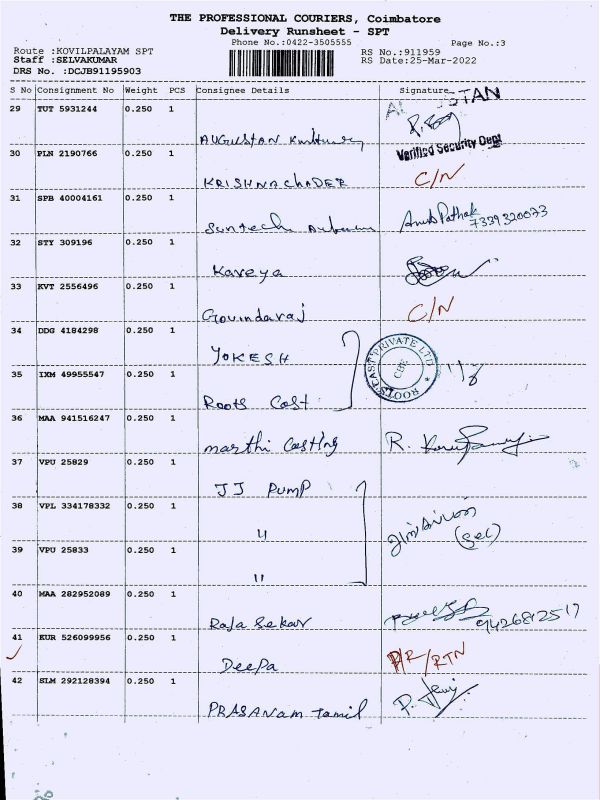 THE PROFESSIONAL COURIERS, Coimbatore
Delivery Runsheet - SPT
Phone No.:0422-3505555 Page No.:3
Route :KOVILPALAYAM SPT RS No.:911959
Staff :SELVAKUMAR RS Date:25-Mar-2022
DRS No. :DCJB91195903
S No Consignment No Weight PCS Consignee Details Signature
29 TUT 5931244 0.250 1
AUGUSTAN
Verified Security Dept
30 PLN 2190766 0.250 1
KRISHNACHADER C/N
31 SPB 40004161 0.250 1
Suntech 7339320073
32 STY 309196 0.250 1
Kaveya
33 KVT 2556496 0.250 1
Govindaraj C/N
34 DDG 4184298 0.250 1
YOKESH
ROOTS CAST PRIVATE LTD
CBE
35 IXM 49955547 0.250 1
Roots Cast
36 MAA 941516247 0.250 1
marthi Casting R.
37 VPU 25829 0.250 1
JJ Pump
38 VPL 334178332 0.250 1
"
(Sec)
39 VPU 25833 0.250 1
"
40 MAA 282952089 0.250 1
Raja Sekar
41 KUR 526099956 0.250 1
Deepa P/R/RTN
42 SLM 292128394 0.250 1
PRASANAM Tamil